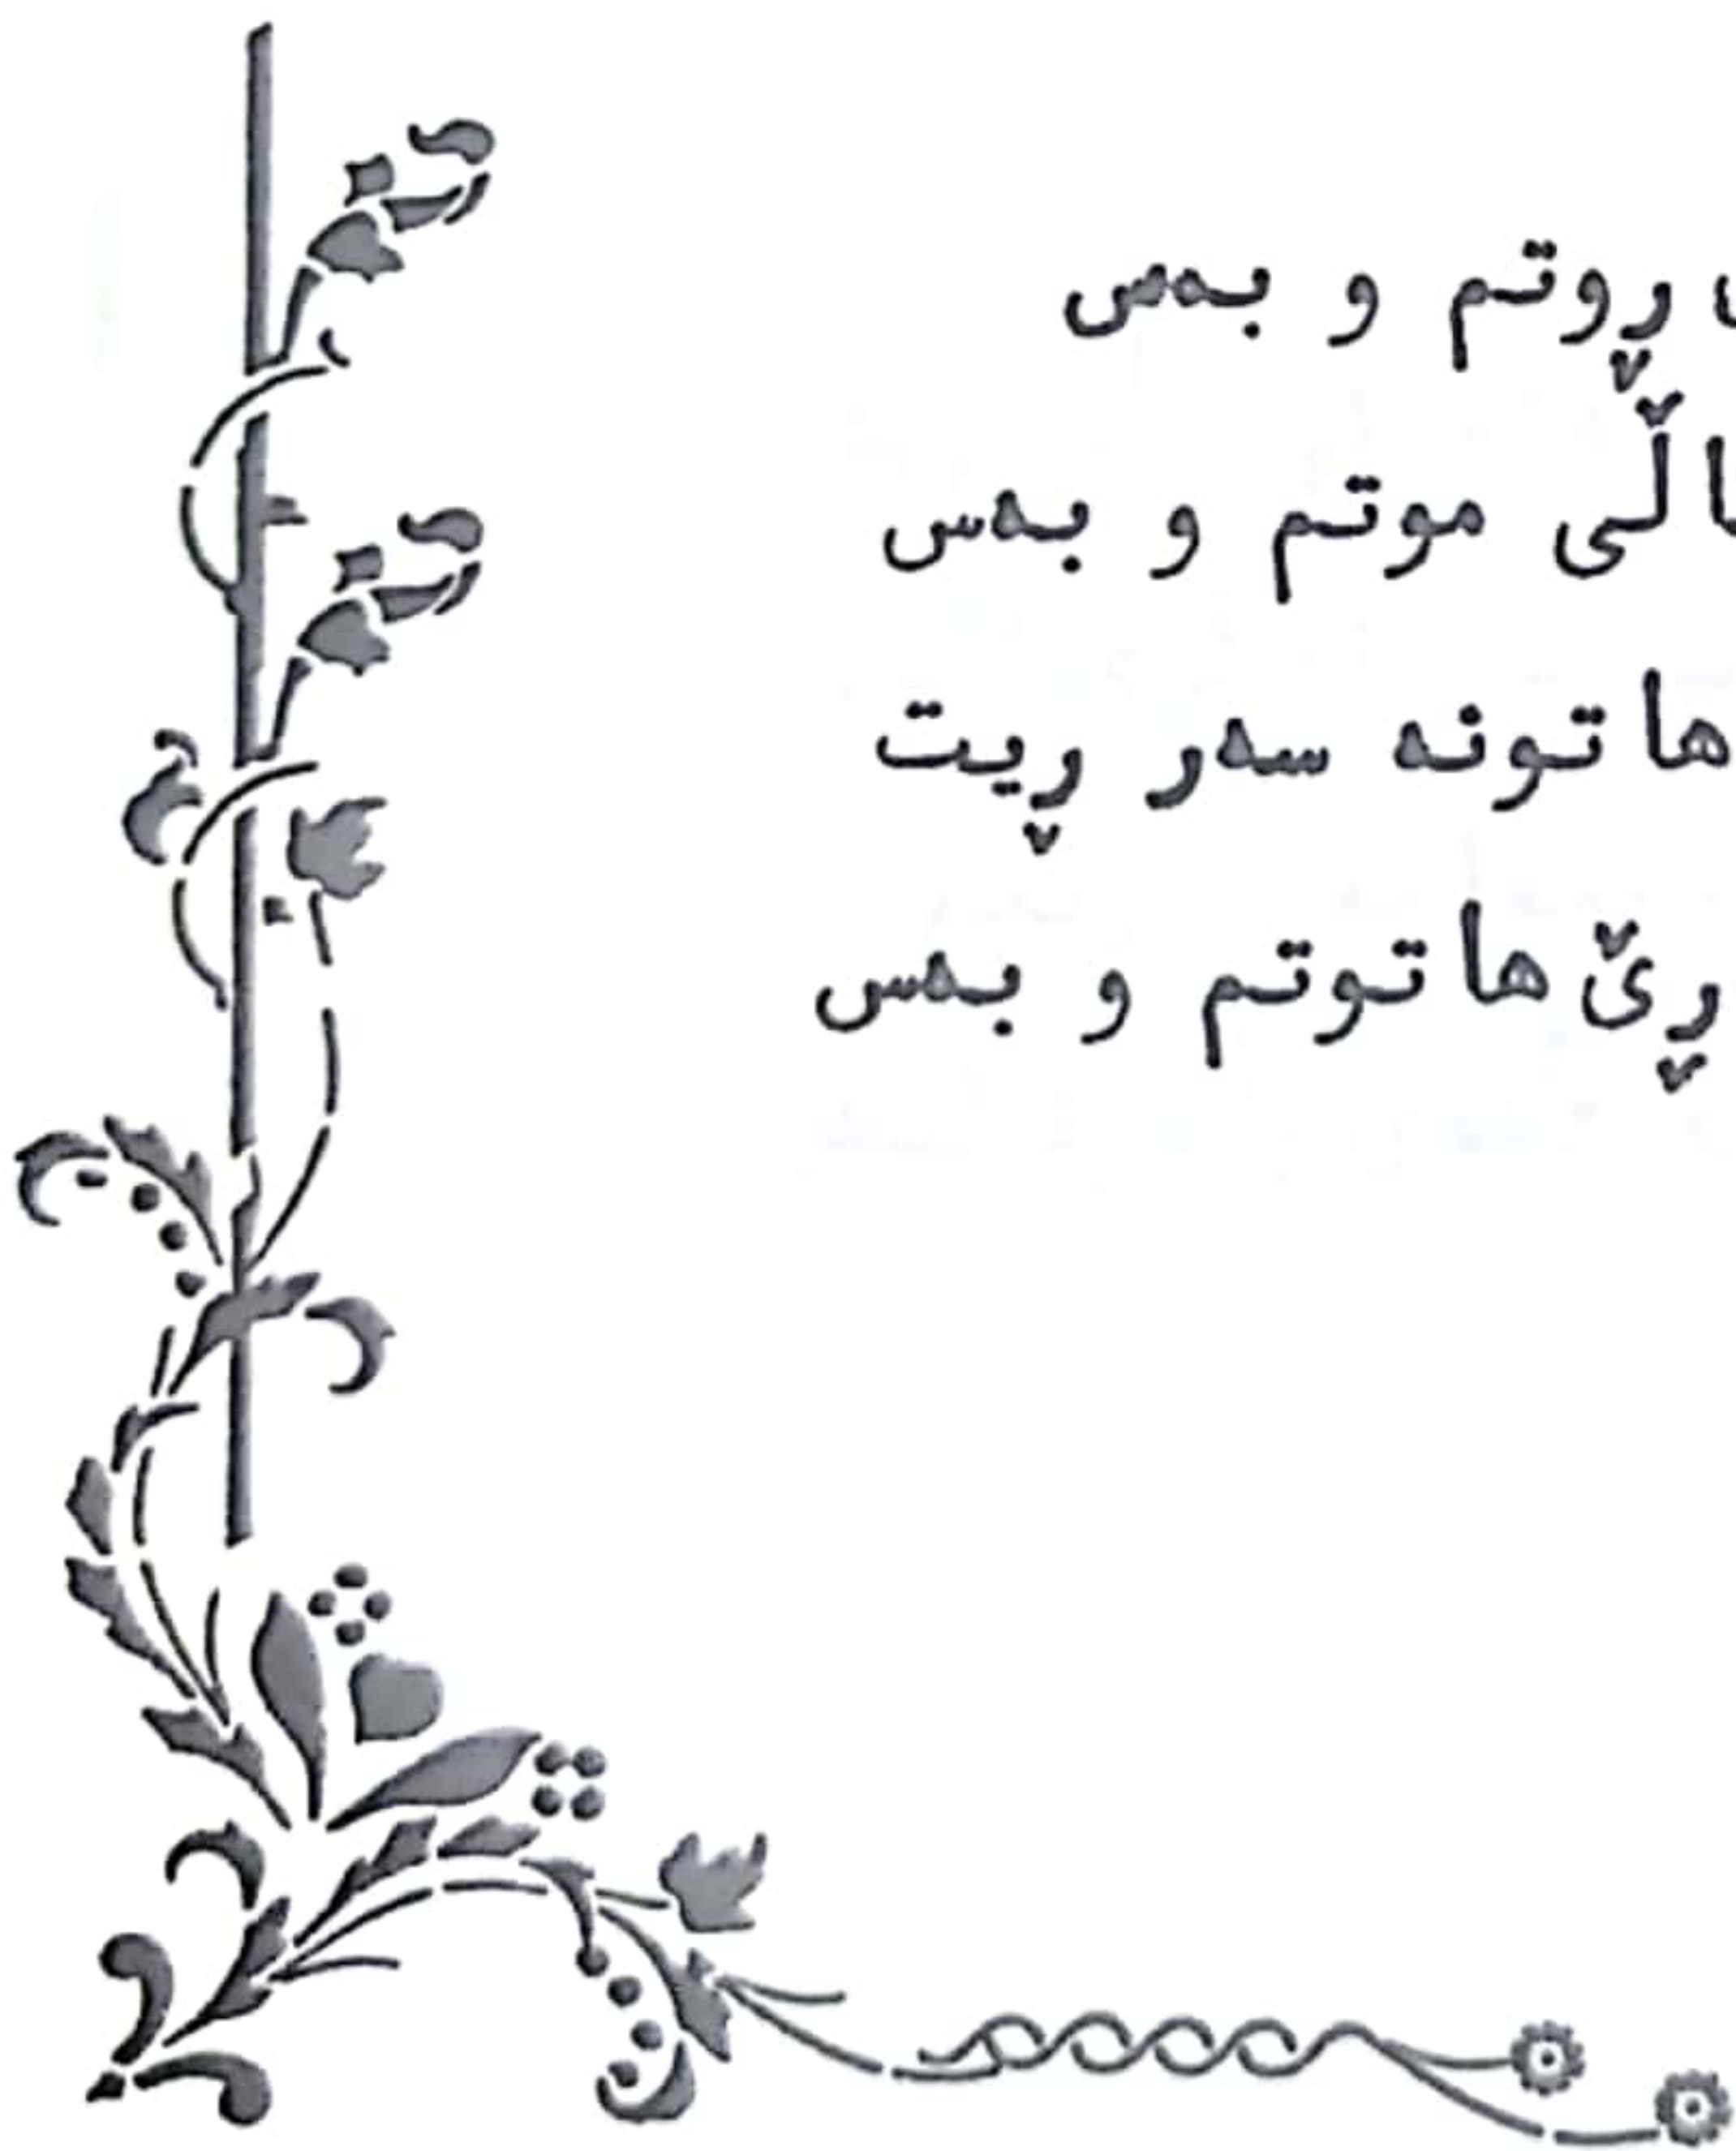 ڕوتم و بەس
موتم و بەس
هاتونە سەر ڕیت
ڕێ هاتوتم و بەس